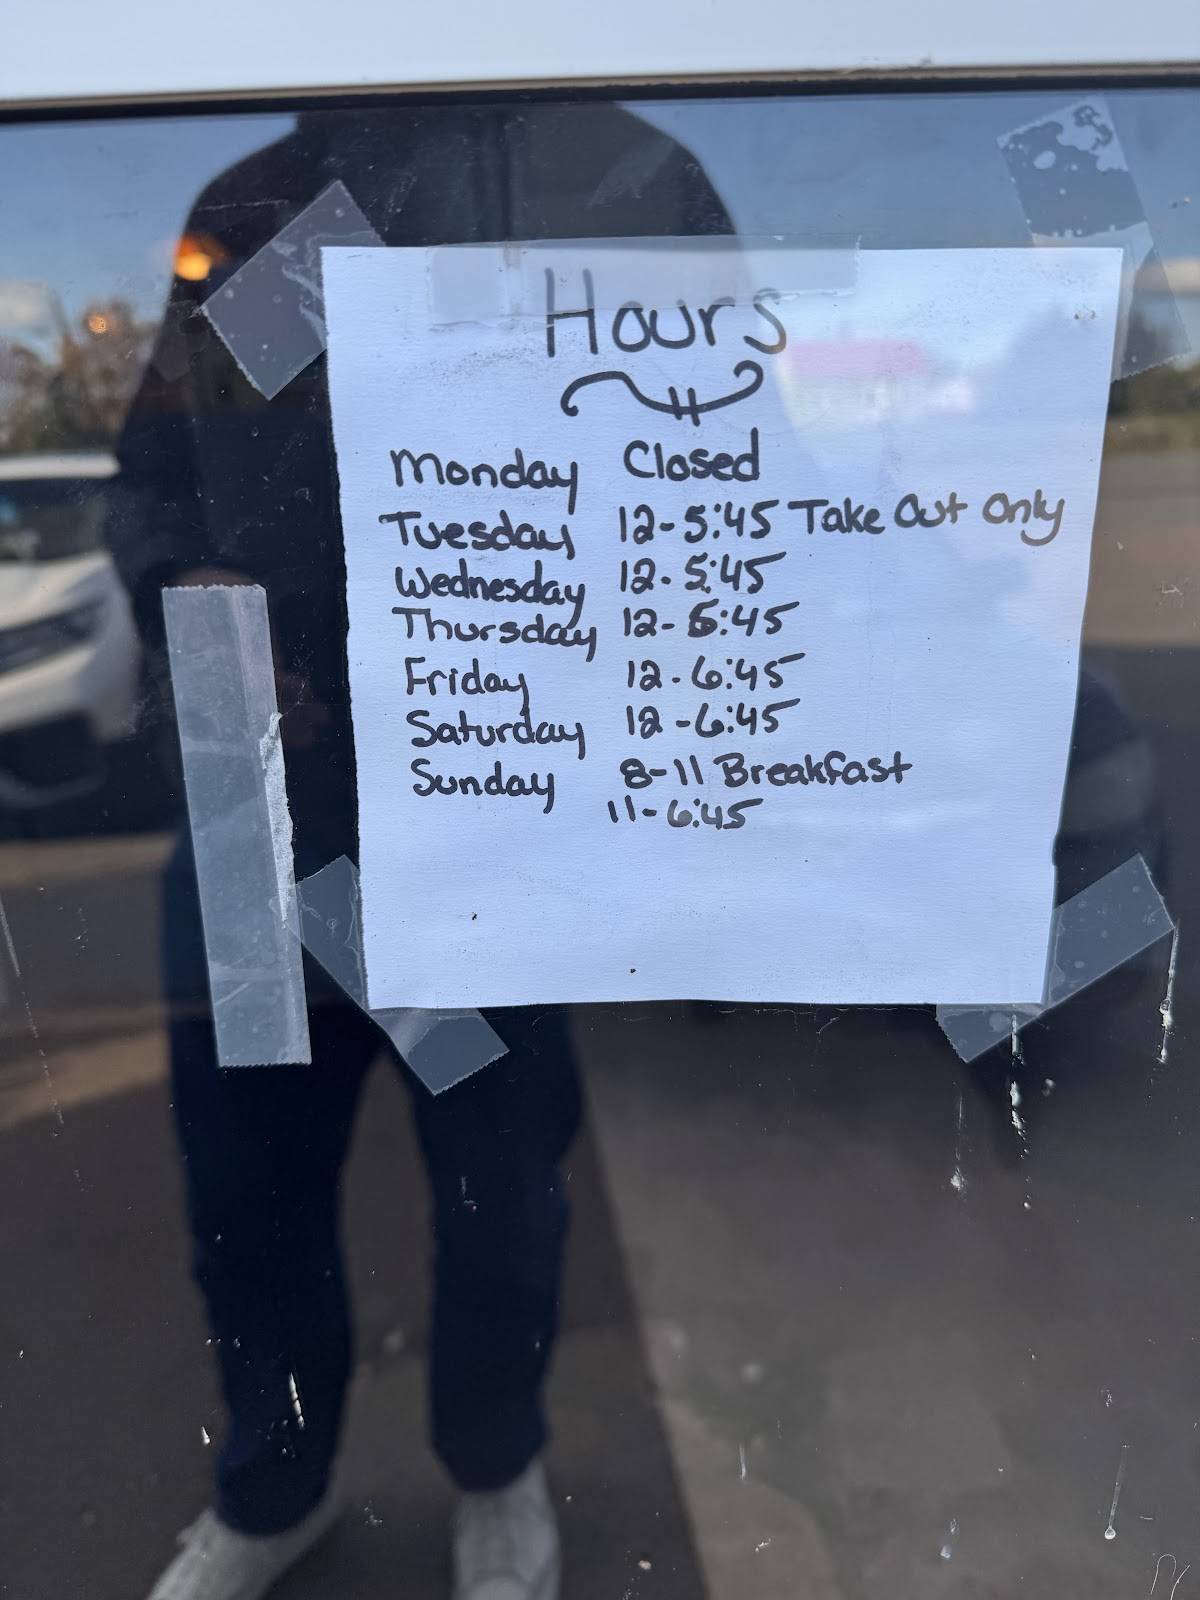 Hours
Monday Closed
Tuesday 12-5:45 Take Out Only
Wednesday 12-5:45
Thursday 12-5:45
Friday 12-6:45
Saturday 12-6:45
Sunday 8-11 Breakfast
11-6:45